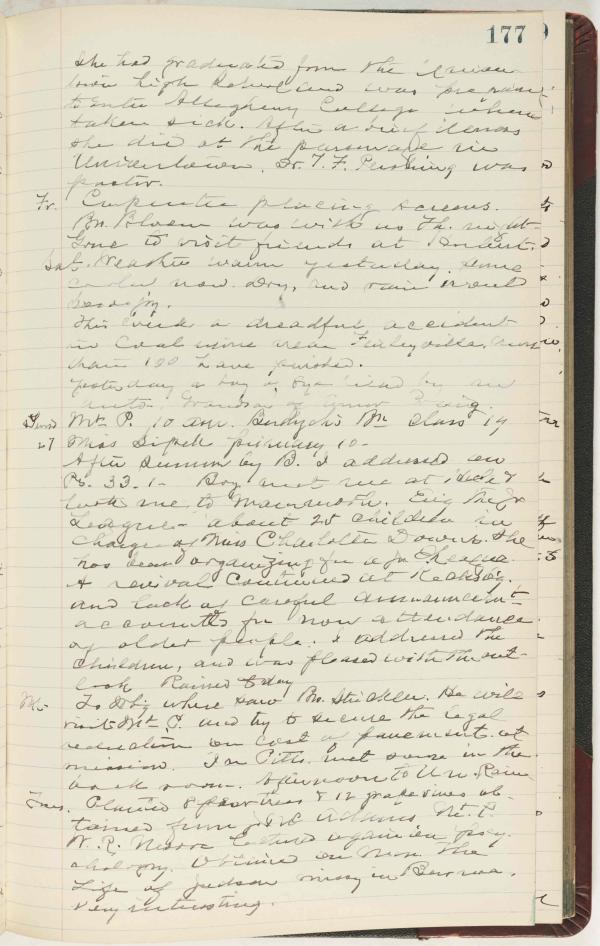 177
She had graduated from the Union
town high school and was preparing
to enter Allegheny College when
taken sick. After a brief illness
she died at the parsonage in
Uniontown. Dr. T. F. Pershing was
pastor.
Fr. Carpenter placing screens.
Bro. Bloom was with us Th. night.
Gone to visit friends at
Sat. Weather warm yesterday. Some
cooler now. Dry, and rain would
be enjoy.
This week a dreadful accident
in Coal mine near Finleyville. More
than 100 have perished.
Yesterday a boy of 8 yrs killed by an
auto. Grandson of
Sund Mt. P. 10 am. Class 14
27 Miss Sipe primary 10-
After summary by B. I addressed on
Ps. 33.1- Boy met me at &
took me to Mammoth. Eve the Jr
League - about 25 children in
charge of Miss Charlotte Down. She
has been organizing for a Jr League.
A revival continued at Kecksbg.
and lack of careful announcem't
accounts for non attendance
of older people. I addressed the
children, and was pleased with the out-
look Rained today
Mo- To where saw Bro. Strickler. He will
visit Mt P. and try to secure the legal
reduction on cost of pavement at
mission. In Pitts. met some in the
back room. Afternoon to Un. Rain
Tues. Planted 8 pear trees & 12 grape vines ob-
tained from Adams Mt. P.
W. R. lectured again on psy-
chology. on Mon. the
Life of Judson missy in Burma.
Very interesting.